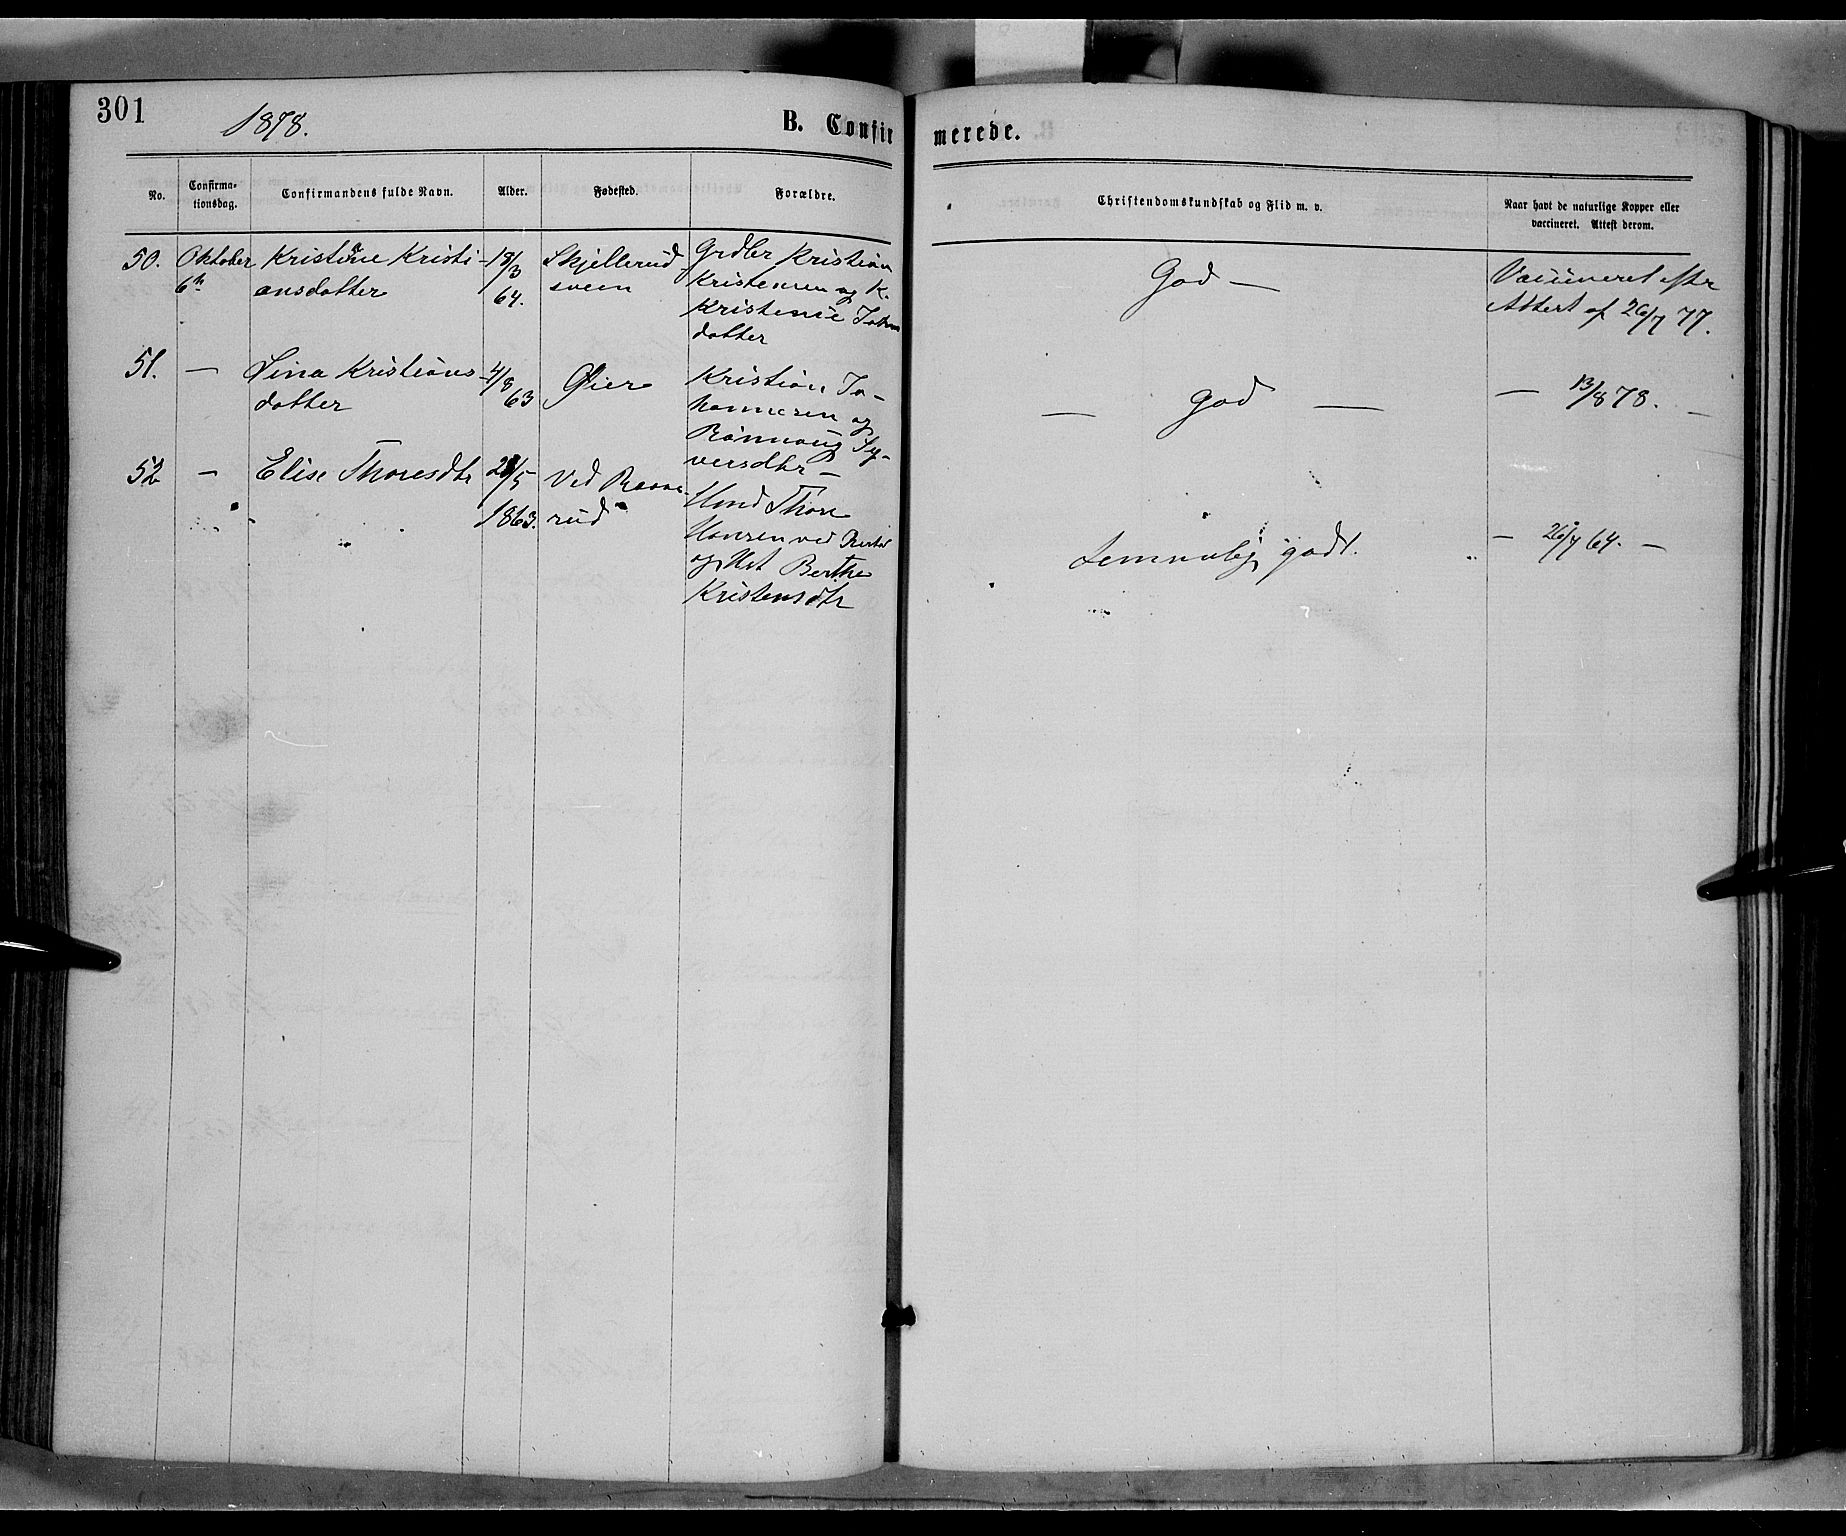 301
1878.
B. Confir merede.
No.
Confirma-
tionsdag.
Confirmandens fulde Navn.
Alder.
Fødested.
Forældre.
Christendomskundskab og Flid m. v.
Naar havt de naturlige Kopper eller
vaccineret. Attest derom.
50. Oktober Kristine Kristi- 18/3 Skjellerud Grdbr Kristian
6te ansdatter 64. sveen Kristensen og K.
Kristense
datter
God —
Vaccineret eftr
Attest af 26/7 77.
51. — Lina Kristians- 4/8 Øier Kristian Jo-
datter 63 hannesen og
Rønnoug Sy-
versdtr —
— god —
— 13/8 78. —
52 — Elise Thoresdtr 28/5 Ved
1863. rud
Thore
Hansen ved
og Berthe
Kristensdtr
temmelig godt.
— 26/7 64. —